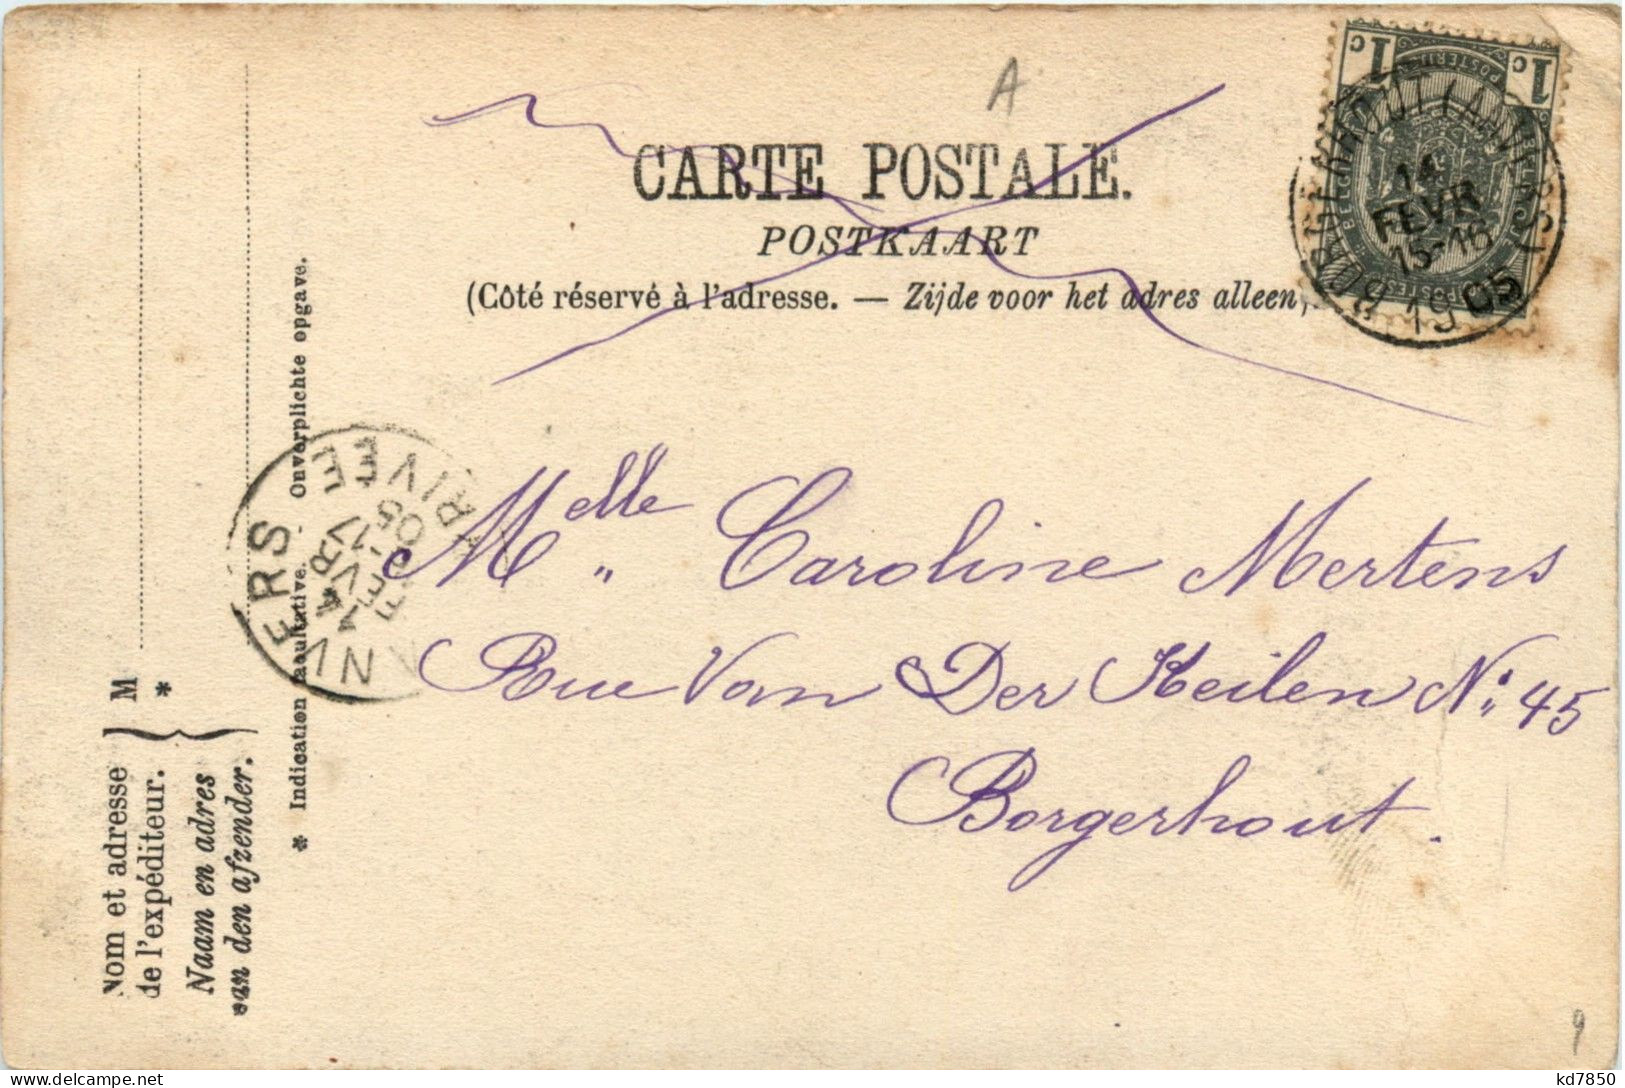 A
CARTE POSTALE.
POSTKAART
(Côté réservé à l'adresse. — Zijde voor het adres alleen)
1c 1c
BORGERHOUT (ANVERS)
14
FEVR
15-16
1905
Melle Caroline Mertens
Rue Van Der Keilen No 45
Borgerhout.
ANVERS ARRIVÉE
14
FEVR
17-
05
* Indication facultative. - Onverplichte opgave.
M
*
Nom et adresse
de l'expéditeur.
Naam en adres
van den afzender.
9
kd7850